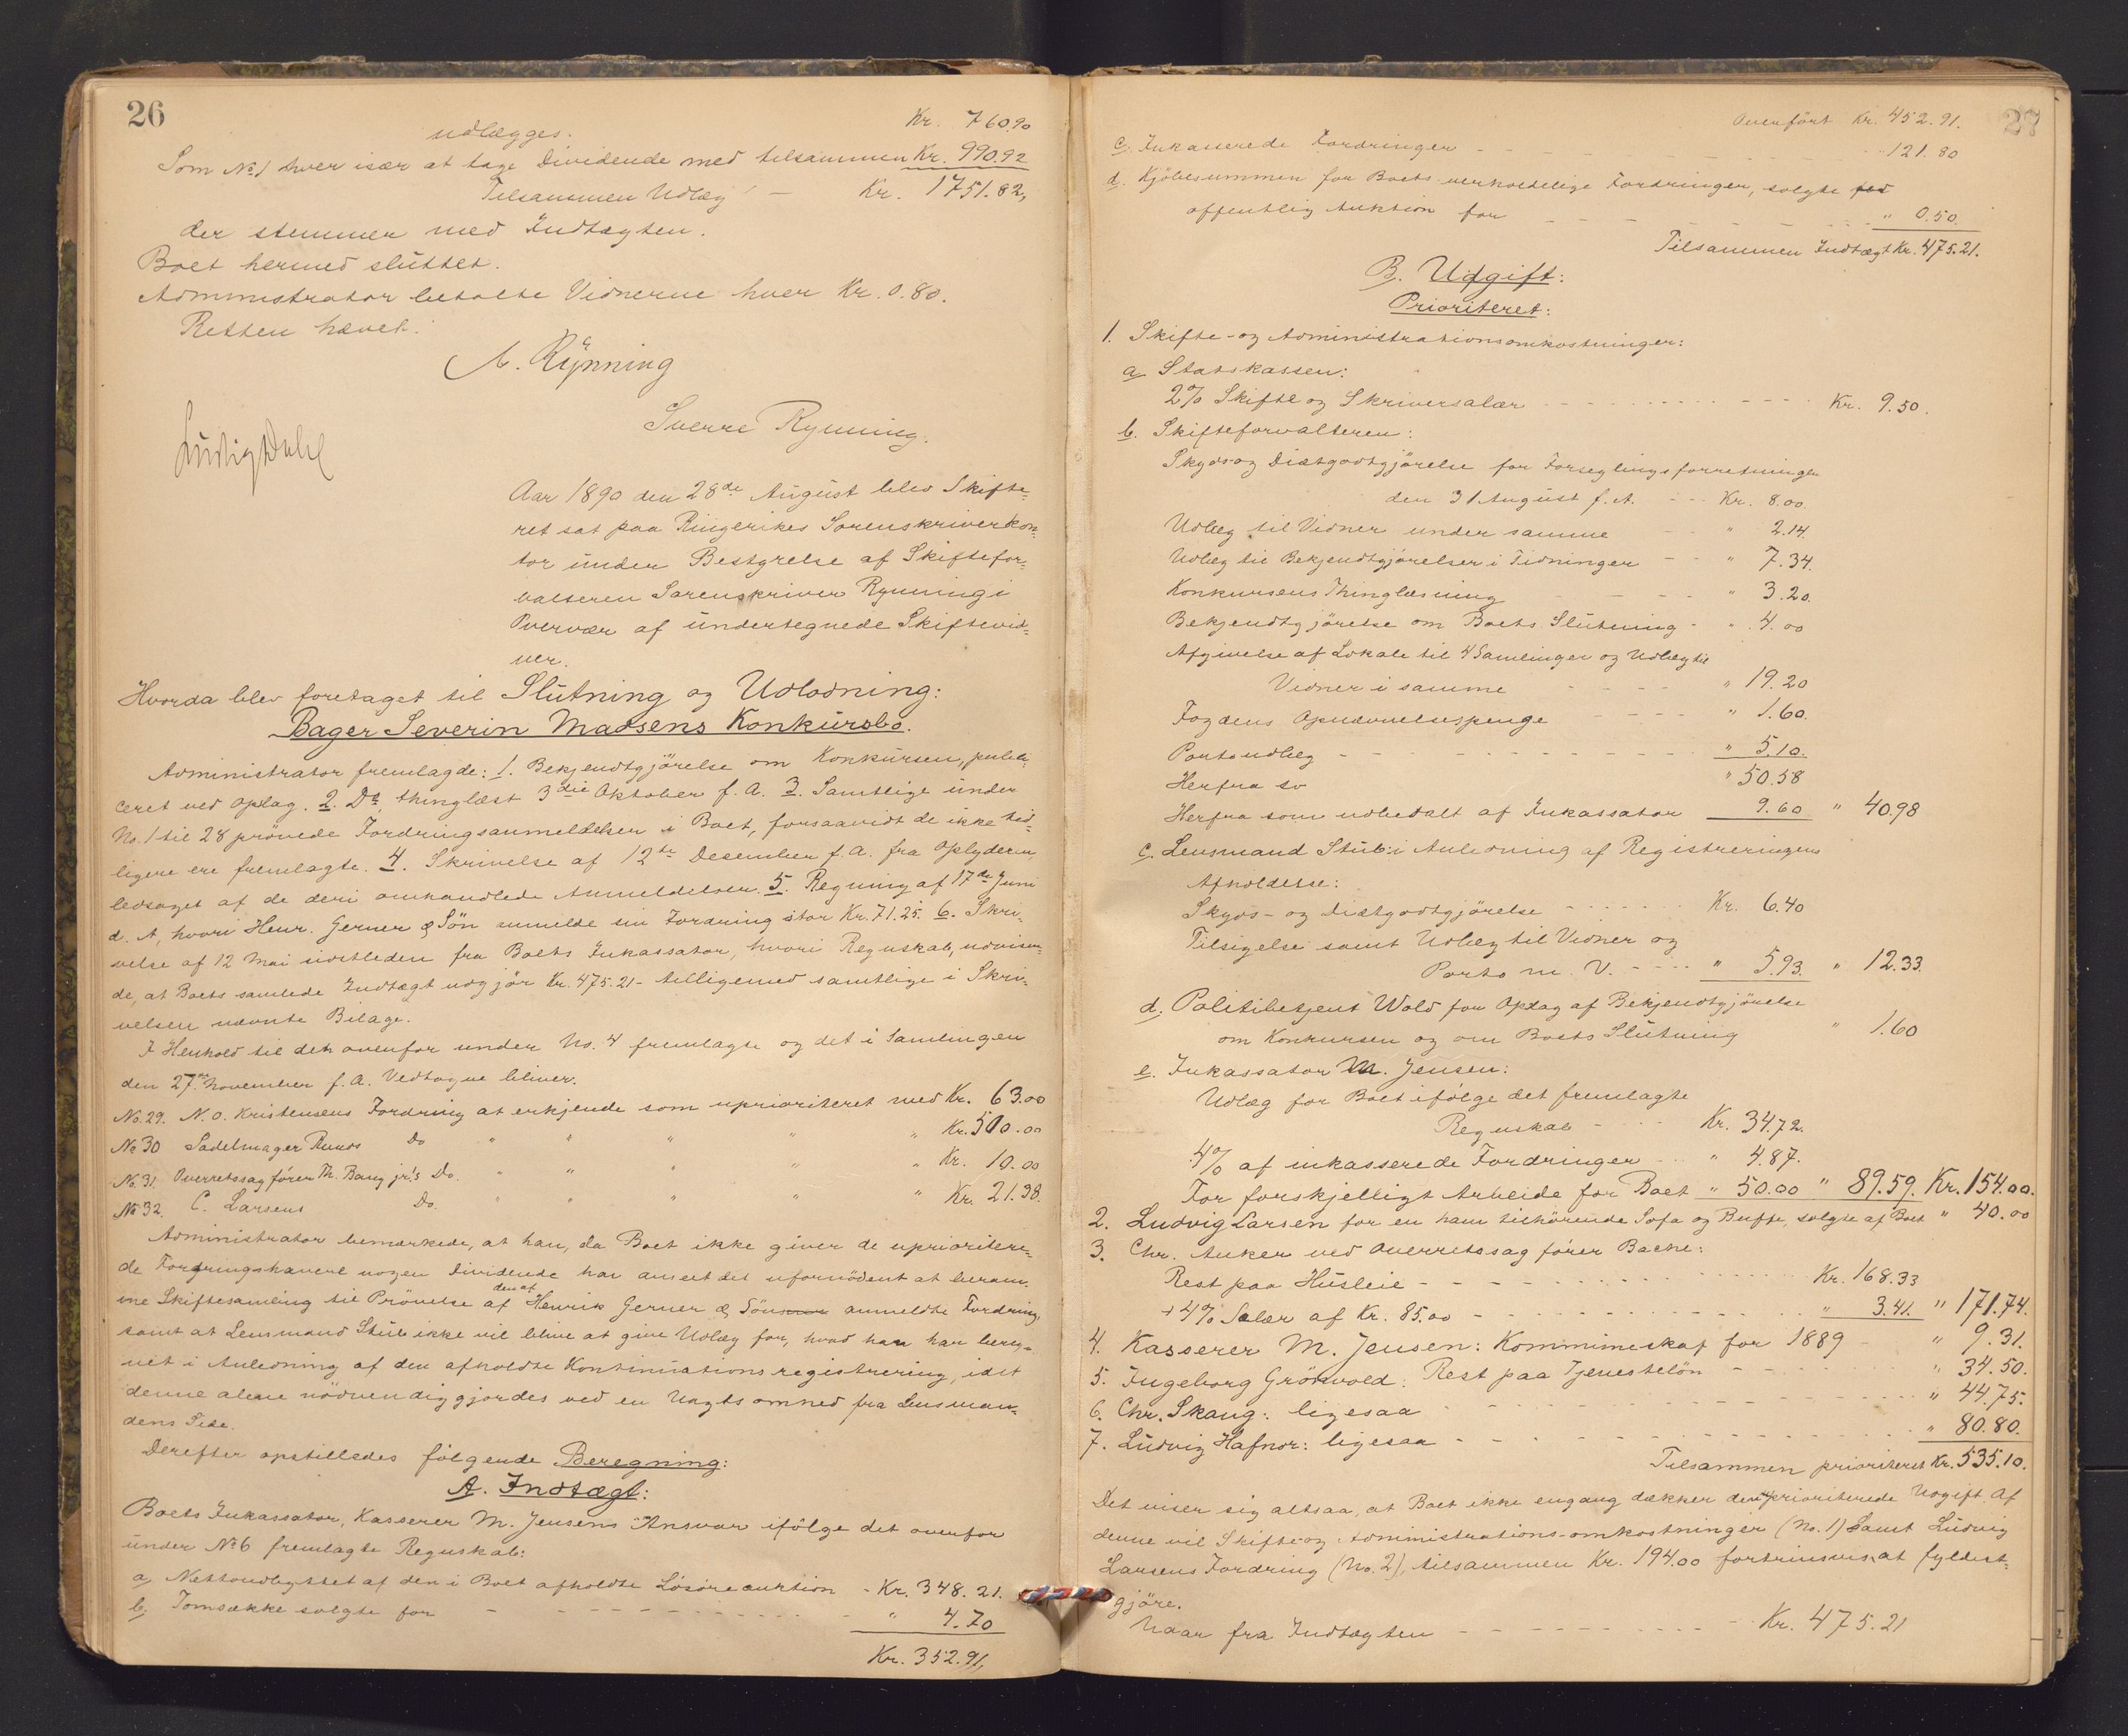 26
Kr. 760.90
udlægges.
Som No 1 hver især at tage Dividende med tilsammen Kr. 990.92
Tilsammen Udlæg - Kr. 1751.82,
der stemmer med Indtægten.
Boet hermed sluttet.
Administrator betalte Vidnerne hver Kr. 0.80.
Retten hævet.
A. Rynning
Sverre Rynning.
Ludvig Dahl
Aar 1890 den 28de August blev Skifte-
ret sat paa Ringerikes Sorenskriverkon-
tor under Bestyrelse af Skiftefor-
valteren Sorenskriver Rynning i
Overvær af undertegnede Skiftevid-
ner.
Hvorda blev foretaget til Slutning og Udlodning:
Bager Severin Madsens Konkursbo.
Administrator fremlagde: 1. Bekjendtgjörelse om Konkursen, publi-
ceret ved Opslag. 2. Do, thinglæst 3die Oktober f. A. 3. Samtlige under
No. 1 til 28 prövede Fordringsanmeldelser i Boet, forsaavidt de ikke tid-
ligere ere fremlagte. 4. Skrivelse af 12te Desember f. A. fra Opbyderen,
ledsaget af de deri omhandlede Anmeldelser. 5. Regning af 17de Juni
d. A, hvori Henr. Gerner & Sön anmelde sin Fordring stor Kr. 71.25. 6. Skri-
velse af 12 Mai sidstleden fra Boets Inkassator, hvori Regnskab, udvisen-
de, at Boets samlede Indtægt udgjör Kr. 475.21 - tilligemed samtlige i Skri-
velsen nævnte Bilage.
I Henhold til den ovenfor under No. 4 fremlagte og det i Samlingen
den 27de November f. A. Vedtagne bliver.
No. 29. N. O. Kristensens Fordring at erkjende som uprioriteret med Kr. 63.00
No 30 Sadelmager Ruuds Do " " " " " Kr. 510.00
No. 31. Overretssagförer Th. Bang jr's Do. " " " " " Kr. 10.00
No 32. C. Larsens Do. " " " " " Kr. 21.98.
Administrator bemærkede, at han, da Boet ikke giver de uprioritere-
de Fordringshavere nogen Dividende har anseet det ufornödent at beram-
me Skiftesamling til Prövelse af den af Henrik Gerner & Sön anmeldte Fordring,
samt at Lensmand Stub ikke vil blive at give Udlæg for, hvad han har bereg-
net i Anledning af den afholdte Kontinuationsregistrering, idet
denne alene nödvendiggjordes ved en Uagtsomhed fra Lensman-
dens Side.
Derefter opstilledes fölgende Beregning:
A. Indtægt:
Boets Inkassator, Kasserer M. Jensens Ansvar ifölge det ovenfor
under No 6 fremlagte Regnskab:
a, Nettoudbyttet af den i Boet afholdte Lösöreauktion - Kr. 348.21.
b, Tomsække solgte for - - - " 4.70
Kr. 352.91,
27
Overfört Kr. 452.91.
c. Inkasserede Fordringer - - - 121.80
d. Kjöbesummen for Boets uerholdelige Fordringer, solgte ved
offentlig Auktion for - - - " 0.50.
Tilsammen Indtægt Kr. 475.21.
B. Udgift:
Prioriteret:
1. Skifte- og Administrationsomkostninger:
a, Statskassen:
2% Skifte og Skriversalær - - - Kr. 9.50.
b. Skifteforvalteren:
Skyds og Diætgodtgjörelse for Forseglingsforretningen
den 31 August f. A. - - - Kr. 8.00.
Udlæg til Vidner under samme - " 2.14.
Udlæg til Bekjendtgjörelser i Tidninger - - " 7.34.
Konkursens Thinglæsning - - - " 3.20.
Bekjendtgjörelse om Boets Slutning - " 4.00
Afgivelse af Lokale til 4 Samlinger og Udlæg til
Vidner i samme - - - " 19.20
Fogdens Opnævnelsespenge - - - " 1.60.
Portoudlæg - - - " 5.10.
Herfra so " 50.58
Herfra som udbetalt af Inkassator 9.60 " 40.98
c. Lensmand Stub: i Anledning af Registreringens
Afholdelse:
Skyds- og Diætgodtgjörelse - - - Kr. 6.40
Tilsigelse samt Udlæg til Vidner og
Porto m. V. - - - " 5.93. " 12.33.
d. Politibetjent Wold for Opslag af Bekjendtgjörelse
om Konkursen og om Boets Slutning " 1.60
e. Inkassator M. Jensen:
Udlæg for Boet ifölge det fremlagte
Regnskab - - - Kr. 34.72.
4% af inkasserede Fordringer - - " 4.87.
For forskjelligt Arbeide for Boet " 50.00 " 89.59. Kr. 154.00.
2. Ludvig Larsen for en ham tilhörende Sofa og Buffe, solgte af Boet " 40.00
3. Chr. Anker ved Overretssagförer Bache:
Rest paa Husleie - - - Kr. 168.33
+ 4% Salær af Kr. 85.00 - - - " 3.41. " 171.74.
4. Kasserer M. Jensen: Kommuneskat for 1889 - " 9.31.
5. Ingeborg Grönvold: Rest paa Tjenestelön - - - " 34.50.
6. Chr. Skaug: ligesaa - - - " 44.75.
7. Ludvig Hafnor: ligesaa - - - " 80.80.
Tilsammen prioriteret Kr. 535.10.
Det viser sig altsaa, at Boet ikke engang dækker den prioriterede Udgift. Af
denne vil Skifte- og Administrations-omkostninger (No. 1) samt Ludvig
Larsens Fordring (No. 2), tilsammen Kr. 194.00 fortrinsvis at fyldest-
gjöre.
Naar fra Indtægten - - - Kr. 475.21